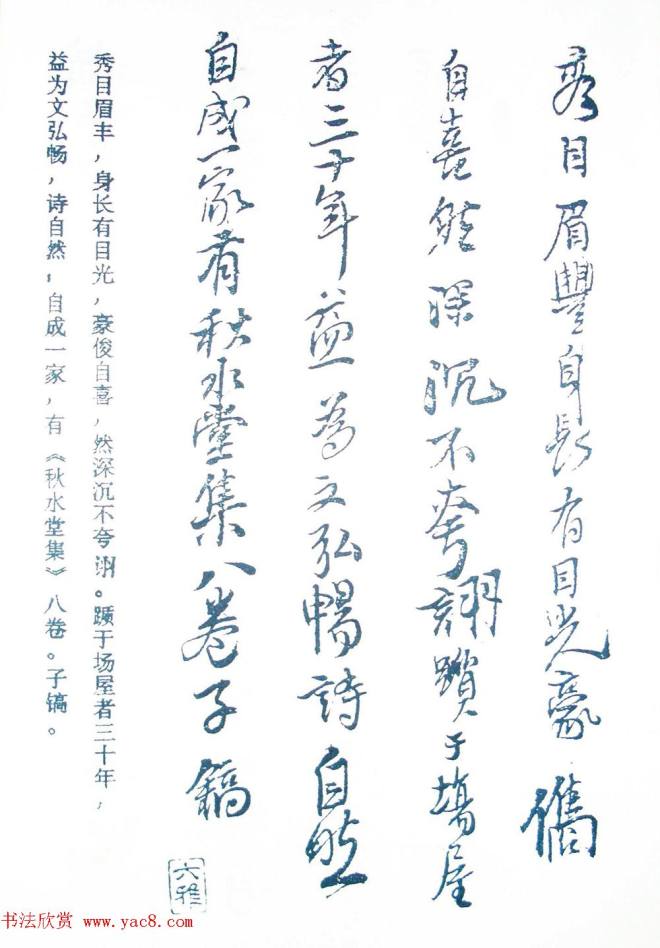 秀目眉豐身長有目光豪儁
自喜然深沉不夸詡躓于場屋
者三十年益為文弘暢詩自然
自成一家有秋水堂集八卷子鎬
秀目眉丰，身长有目光，豪俊自喜，然深沉不夸诩。踬于场屋者三十年，
益为文弘畅，诗自然，自成一家，有《秋水堂集》八卷。子镐。
六雅
书法欣赏 www.yac8.com